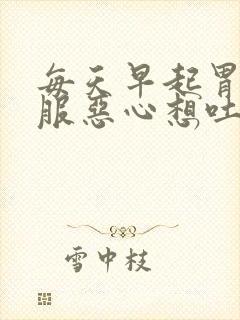 每天早起胃
服惡心想吐
雪中枝